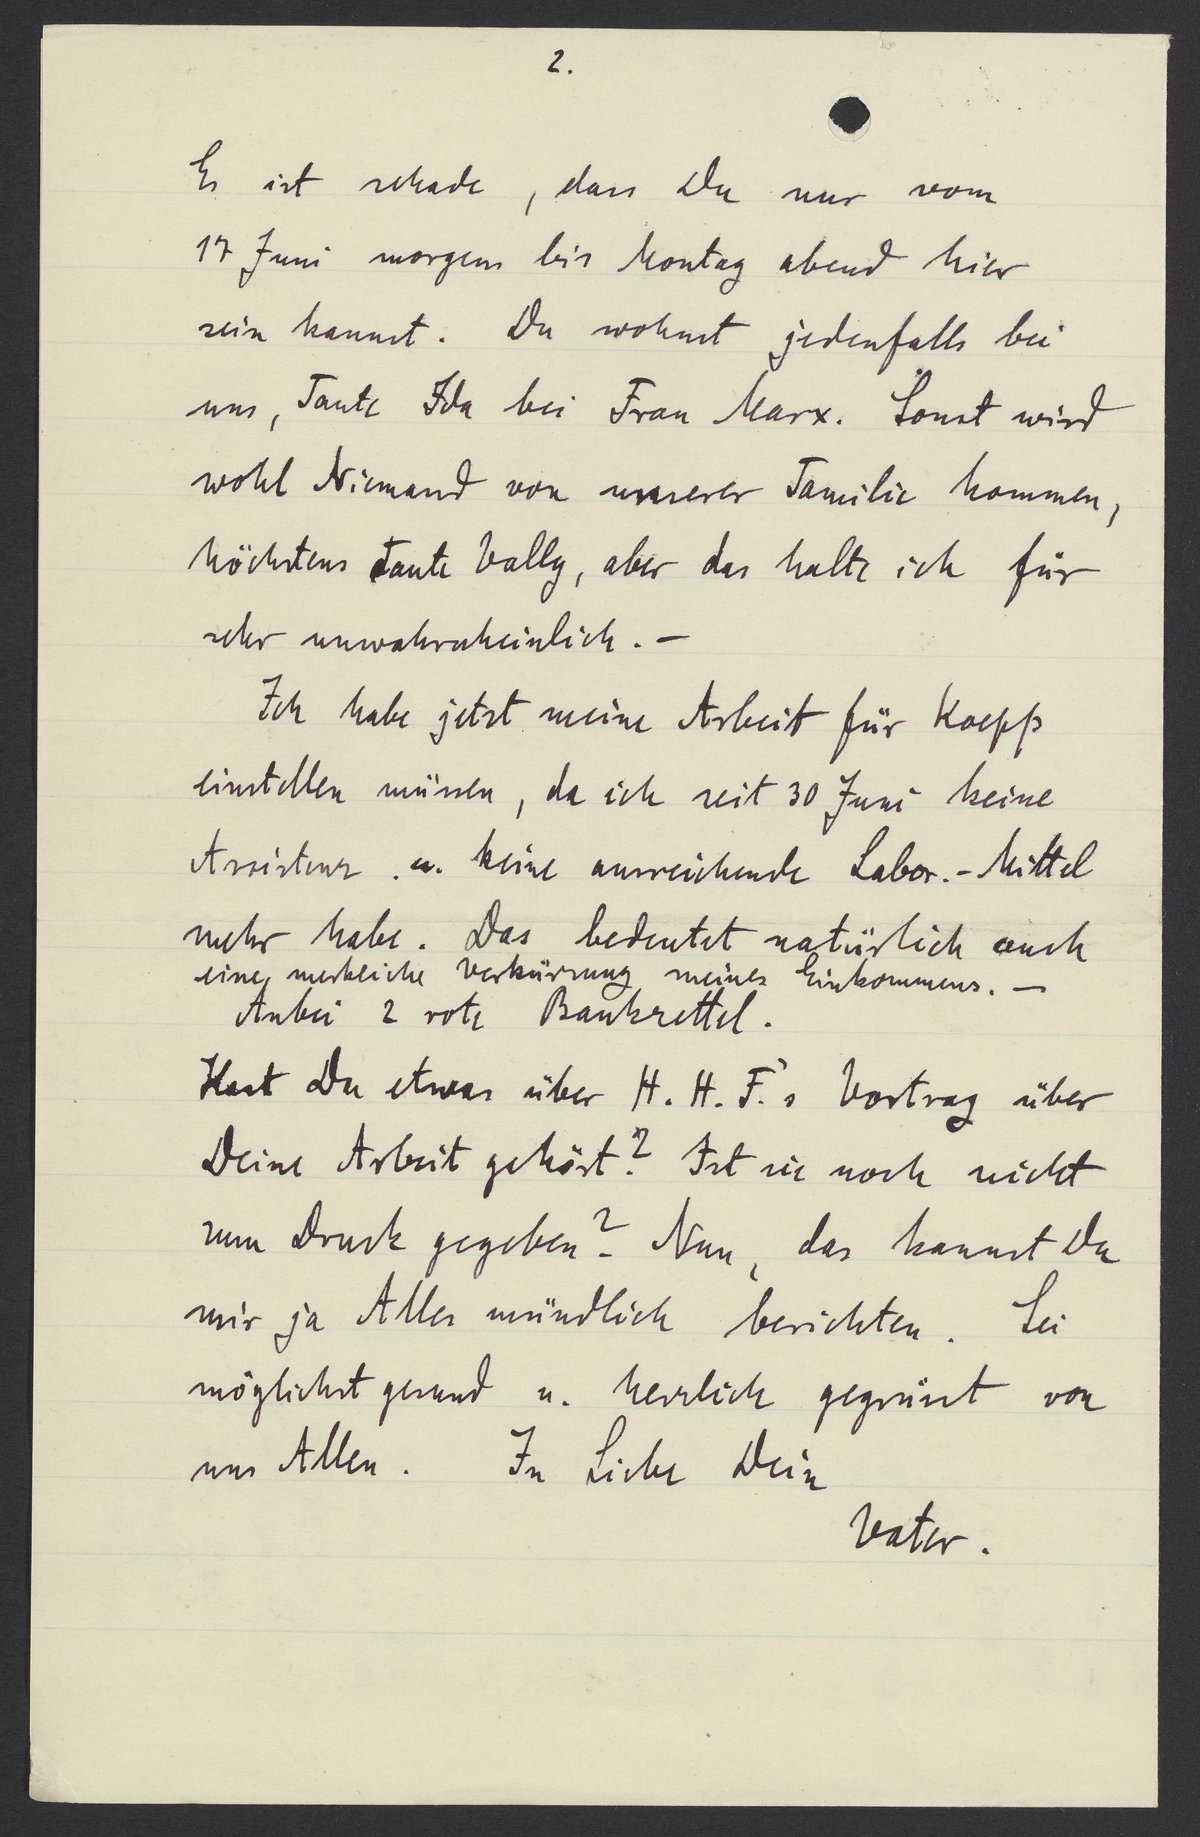 2.
Es ist schade, dass Du nur vom
17 Juni morgens bis Montag abend hier
sein kannst. Du wohnst jedenfalls bei
uns, Tante Ida bei Frau Marx. Sonst wird
wohl Niemand von unserer Familie kommen,
höchstens Tante Vally, aber das halte ich für
sehr unwahrscheinlich. –
Ich habe jetzt meine Arbeit für Koepp
einstellen müssen, da ich seit 30 Juni keine
Assistenz u. keine ausreichende Labor.-Mittel
mehr habe. Das bedeutet natürlich auch
eine merkliche Verkürzung meines Einkommens. –
Anbei 2 rote Bankzettel.
Hast Du etwas über H. H. F.'s Vortrag über
Deine Arbeit gehört? Ist sie noch nicht
zum Druck gegeben? – Nun, das kannst Du
mir ja Alles mündlich berichten. Sei
möglichst gesund u. herzlich gegrüsst von
uns Allen. In Liebe Dein
Vater.